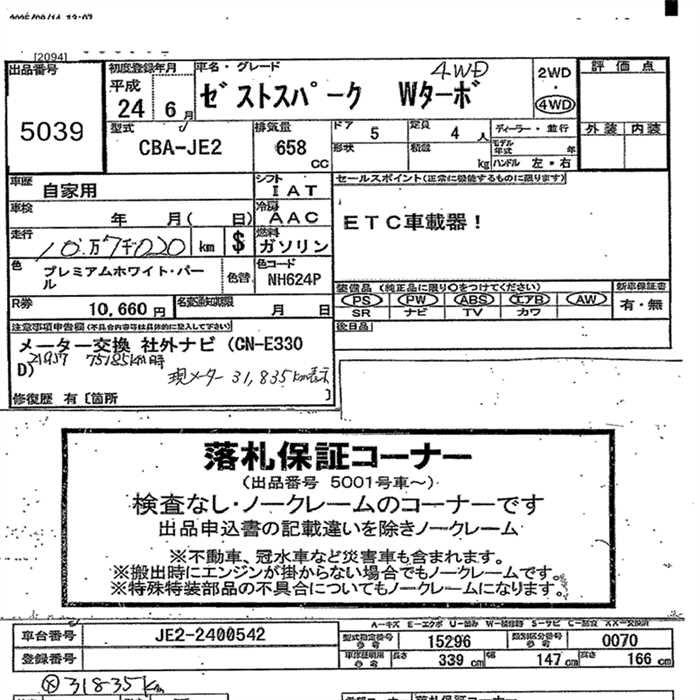 [2094]
出品番号 初度登録年月 車名・グレード 4WD 2WD 評価点
5039 平成 24 6月 ゼストスパーク Wターボ ・ 4WD
型式 排気量 ドア 5 定員 4人 ディーラー・並行 外装 内装
CBA-JE2 658 CC 形状 積載 kg モデル年式 年 ハンドル 左・右
車歴 自家用 シフト IAT セールスポイント(正常に機能するものに限ります)
車検 年 月( 日) 冷房 AAC ETC車載器!
走行 10万7千020 km $ 燃料 ガソリン
色 プレミアムホワイト・パール 色替 色コード NH624P 装備品(純正品に限り○をつけてください) 新車保証書
PS PW ABS エアB AW 有・無
R券 10,660円 名変通知期限 月 日 SR ナビ TV カワ
注意事項申告欄(不具合内容等は具体的に記入して下さい) 後日品
メーター交換 社外ナビ (CN-E330
D) 75185km時
現メーター 31,835km表示
修復歴 有〔箇所 〕
落札保証コーナー
(出品番号 5001号車~)
検査なし・ノークレームのコーナーです
出品申込書の記載違いを除きノークレーム
※不動車、冠水車など災害車も含まれます。
※搬出時にエンジンが掛からない場合でもノークレームです。
※特殊特装部品の不具合についてもノークレームになります。
A=キズ E=エクボ U=凹み W=補修跡 S=サビ C=腐食 XX=交換済
車台番号 JE2-2400542 型式指定番号 参考 15296 類別区分番号 参考 0070
登録番号 車庫証明用 参考 長さ 339cm 幅 147cm 高さ 166cm
Ⓧ31835km
落札保証コーナー